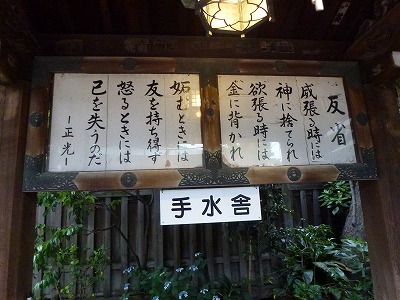 反省
威張る時には
神に捨てられ
欲張る時には
金に背かれ
妬むときには
友を持ち得ず
怒るときには
己を失うのだ
―正光―
手水舎